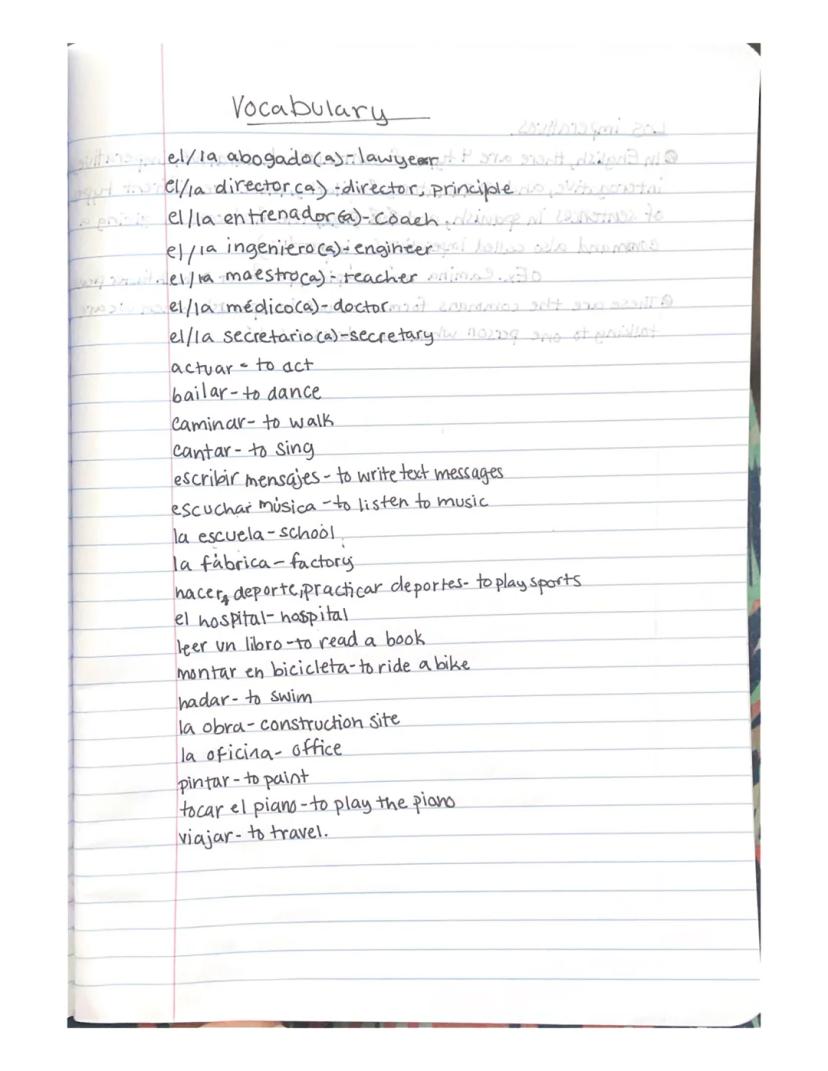 Vocabulary
el/la abogado(a)-lawyear
el/la director(a)-director, principle
el/la entrenador(a)-coach
el/la ingeniero(a)-engineer
el/la maestro(a)-teacher
el/la médico(a)-doctor
el/la secretario(a)-secretary
actuar - to act
bailar - to dance
caminar - to walk
cantar - to sing
escribir mensajes - to write text messages
escuchar música - to listen to music
la escuela - school
la fábrica - factory
hacer deporte, practicar deportes - to play sports
el hospital - hospital
leer un libro - to read a book
montar en bicicleta - to ride a bike
nadar - to swim
la obra - construction site
la oficina - office
pintar - to paint
tocar el piano - to play the piano
viajar - to travel.